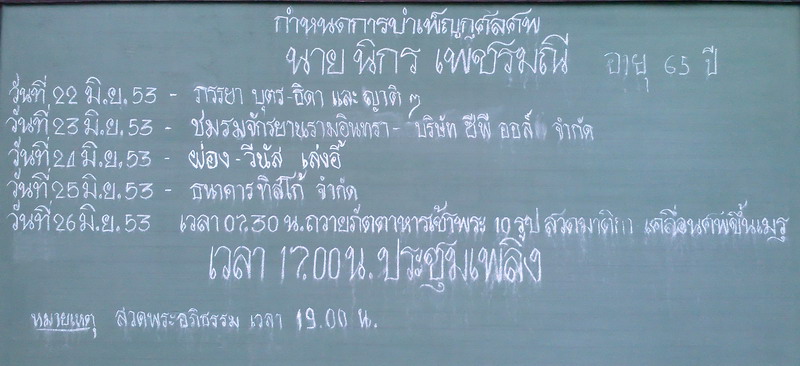 กำหนดการบำเพ็ญกุศลศพ
นาย นิกร เพ็ชรมณี อายุ 65 ปี
วันที่ 22 มิ.ย. 53 - ภรรยา บุตร-ธิดา และ ญาติ ๆ
วันที่ 23 มิ.ย. 53 - ชมรมจักรยานรามอินทรา - บริษัท ซีพี ออล์ จำกัด
วันที่ 24 มิ.ย. 53 - ผ่อง - วีนัส เล่งอี้
วันที่ 25 มิ.ย. 53 - ธนาคาร ทิสโก้ จำกัด
วันที่ 26 มิ.ย. 53 เวลา 07.30 น. ถวายภัตตาหารเช้าพระ 10 รูป สวดมาติกา เคลื่อนศพขึ้นเมรุ
เวลา 17.00 น. ประชุมเพลิง
หมายเหตุ สวดพระอภิธรรม เวลา 19.00 น.